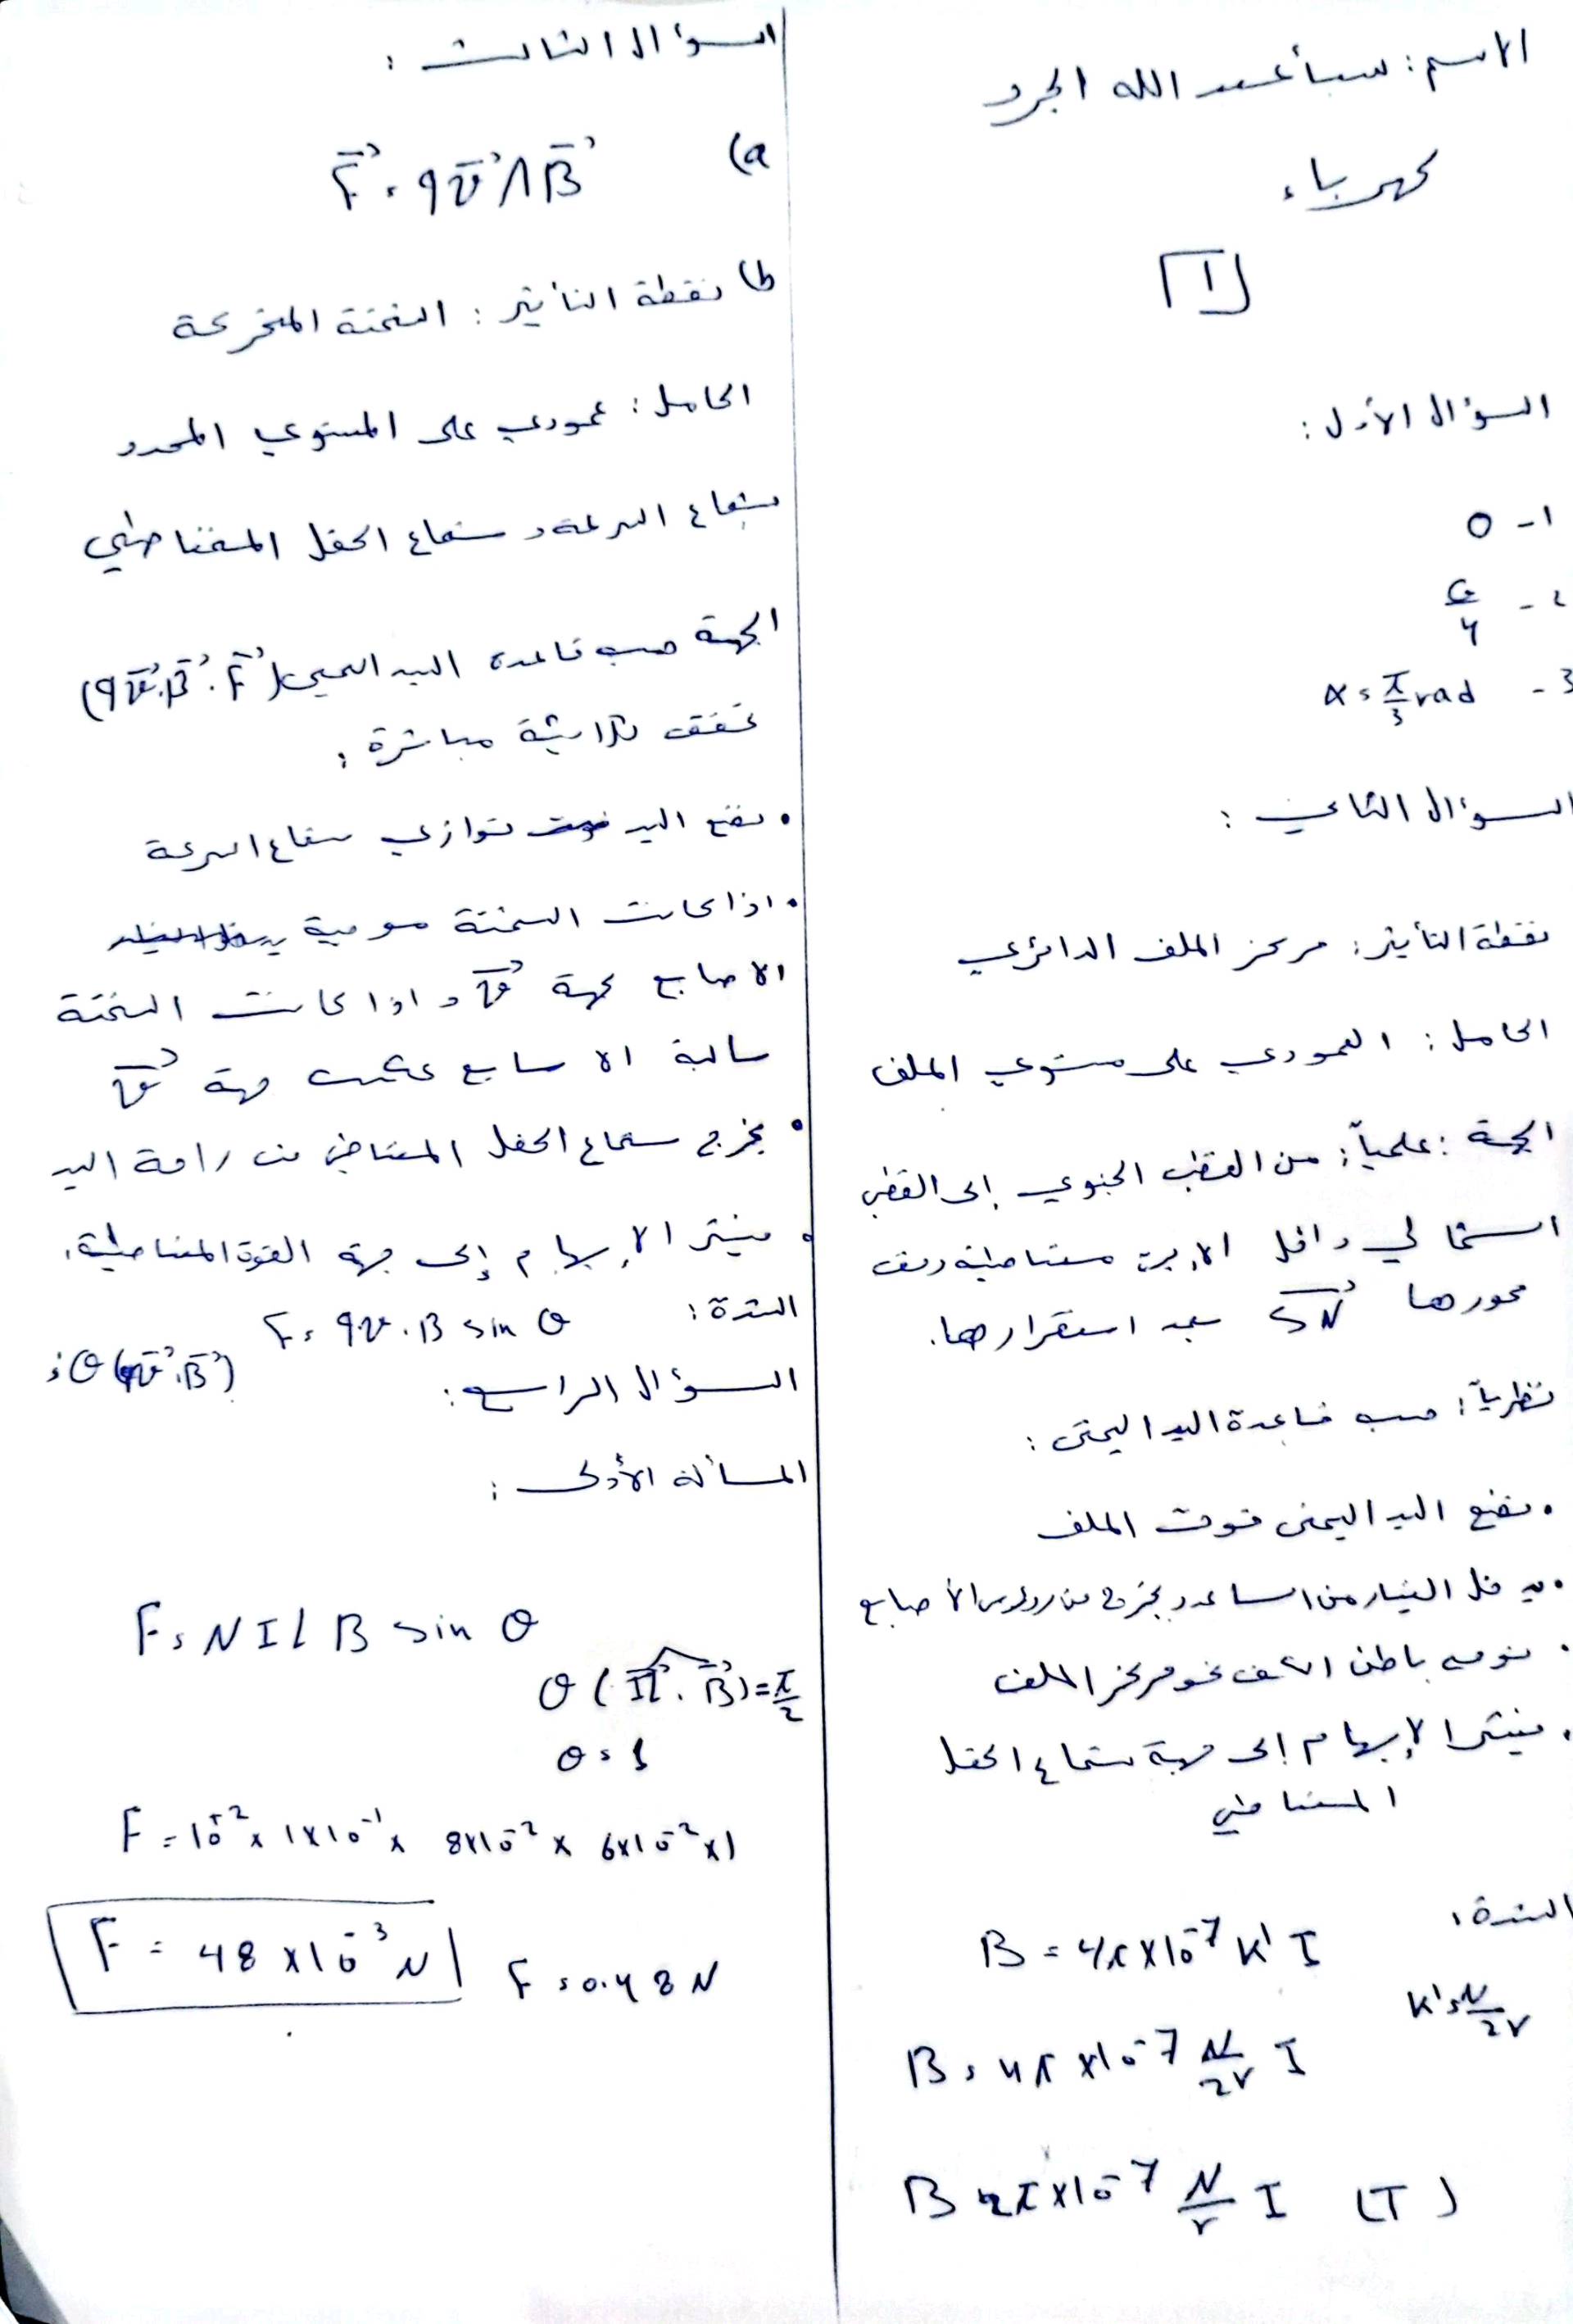 الاسم: سبأ عبد الله الجرد
كهرباء
1
السؤال الأول:
1- 0
2- G/4
3- α = π/3 rad
السؤال الثاني:
نقطة التأثير: مركز الملف الدائري
الحامل: العمودي على مستوي الملف
الجهة: علمياً: من القطب الجنوبي إلى القطب
الشمالي داخل الإبرة مغناطيسية
محورها SN بعد استقرارها.
نظرياً: حسب قاعدة اليد اليمنى:
• نضع اليد اليمنى فوق الملف
• يدخل التيار من الساعد ويخرج من رؤوس الأصابع
• نوجه باطن الكف نحو مركز الملف
• يشير الإبهام إلى جهة شعاع الحقل
المغناطيسي
الشدة:
B = 4π×10⁻⁷ k' I
k' = N/2r
B = 4π×10⁻⁷ N/2r I
B = 2π×10⁻⁷ N/r I (T)
السؤال الثالث:
a) F = qv Λ B
b) نقطة التأثير: الشحنة المتحركة
الحامل: عمودي على المستوي المحدد
بشعاع السرعة و شعاع الحقل المغناطيسي
الجهة حسب قاعدة اليد اليمنى (qv.B.F)
تحقق ثلاثية مباشرة:
• نضع اليد توازي شعاع السرعة
• اذا كانت الشحنة موجبة
الاصابع بجهة v و اذا كانت الشحنة
سالبة الاصابع عكس جهة v
• يخرج شعاع الحقل المغناطيسي من راحة اليد
• يشير الإبهام إلى جهة القوة المغناطيسية.
الشدة: F = q.v.B sin θ
; θ(v.B)
السؤال الرابع:
المسألة الأولى:
F = N I L B sin θ
θ (IL . B) = π/2
θ = 1
F = 10² × 1×10⁻¹ × 8×10⁻² × 6×10⁻² × 1
F = 48 × 10⁻³ N
F = 0.48 N